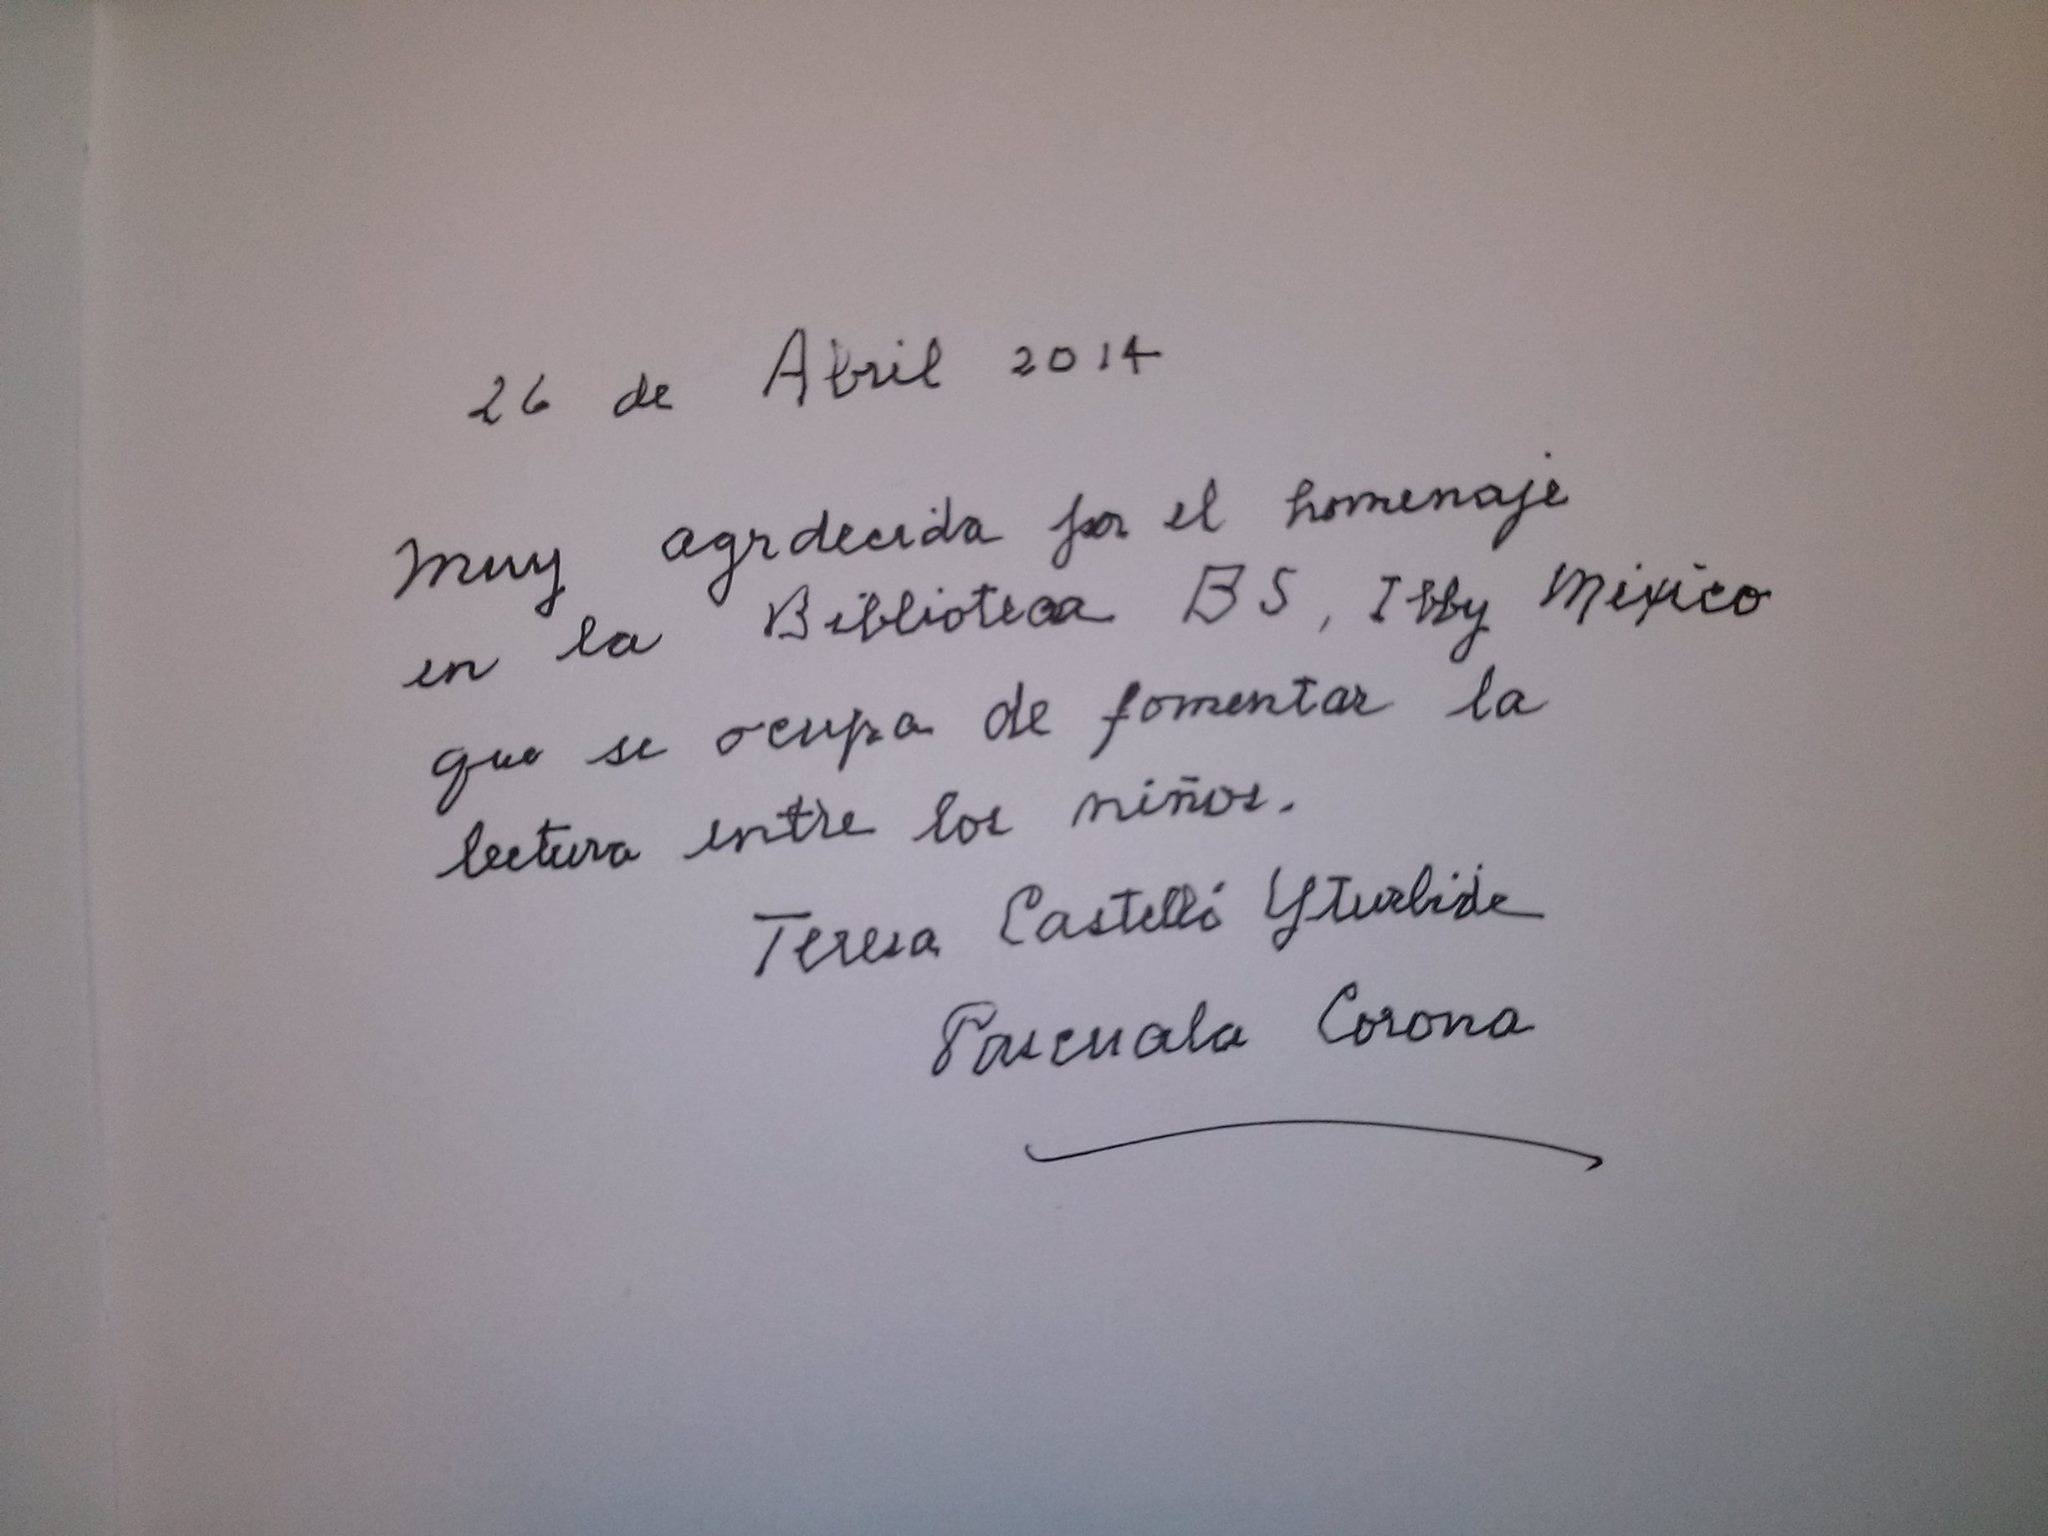 26 de Abril 2014
Muy agrdecida por el homenaje
en la Biblioteca BS, Ibby México
que se ocupa de fomentar la
lectura entre los niños.
Teresa Castelló Yturbide
Pascuala Corona